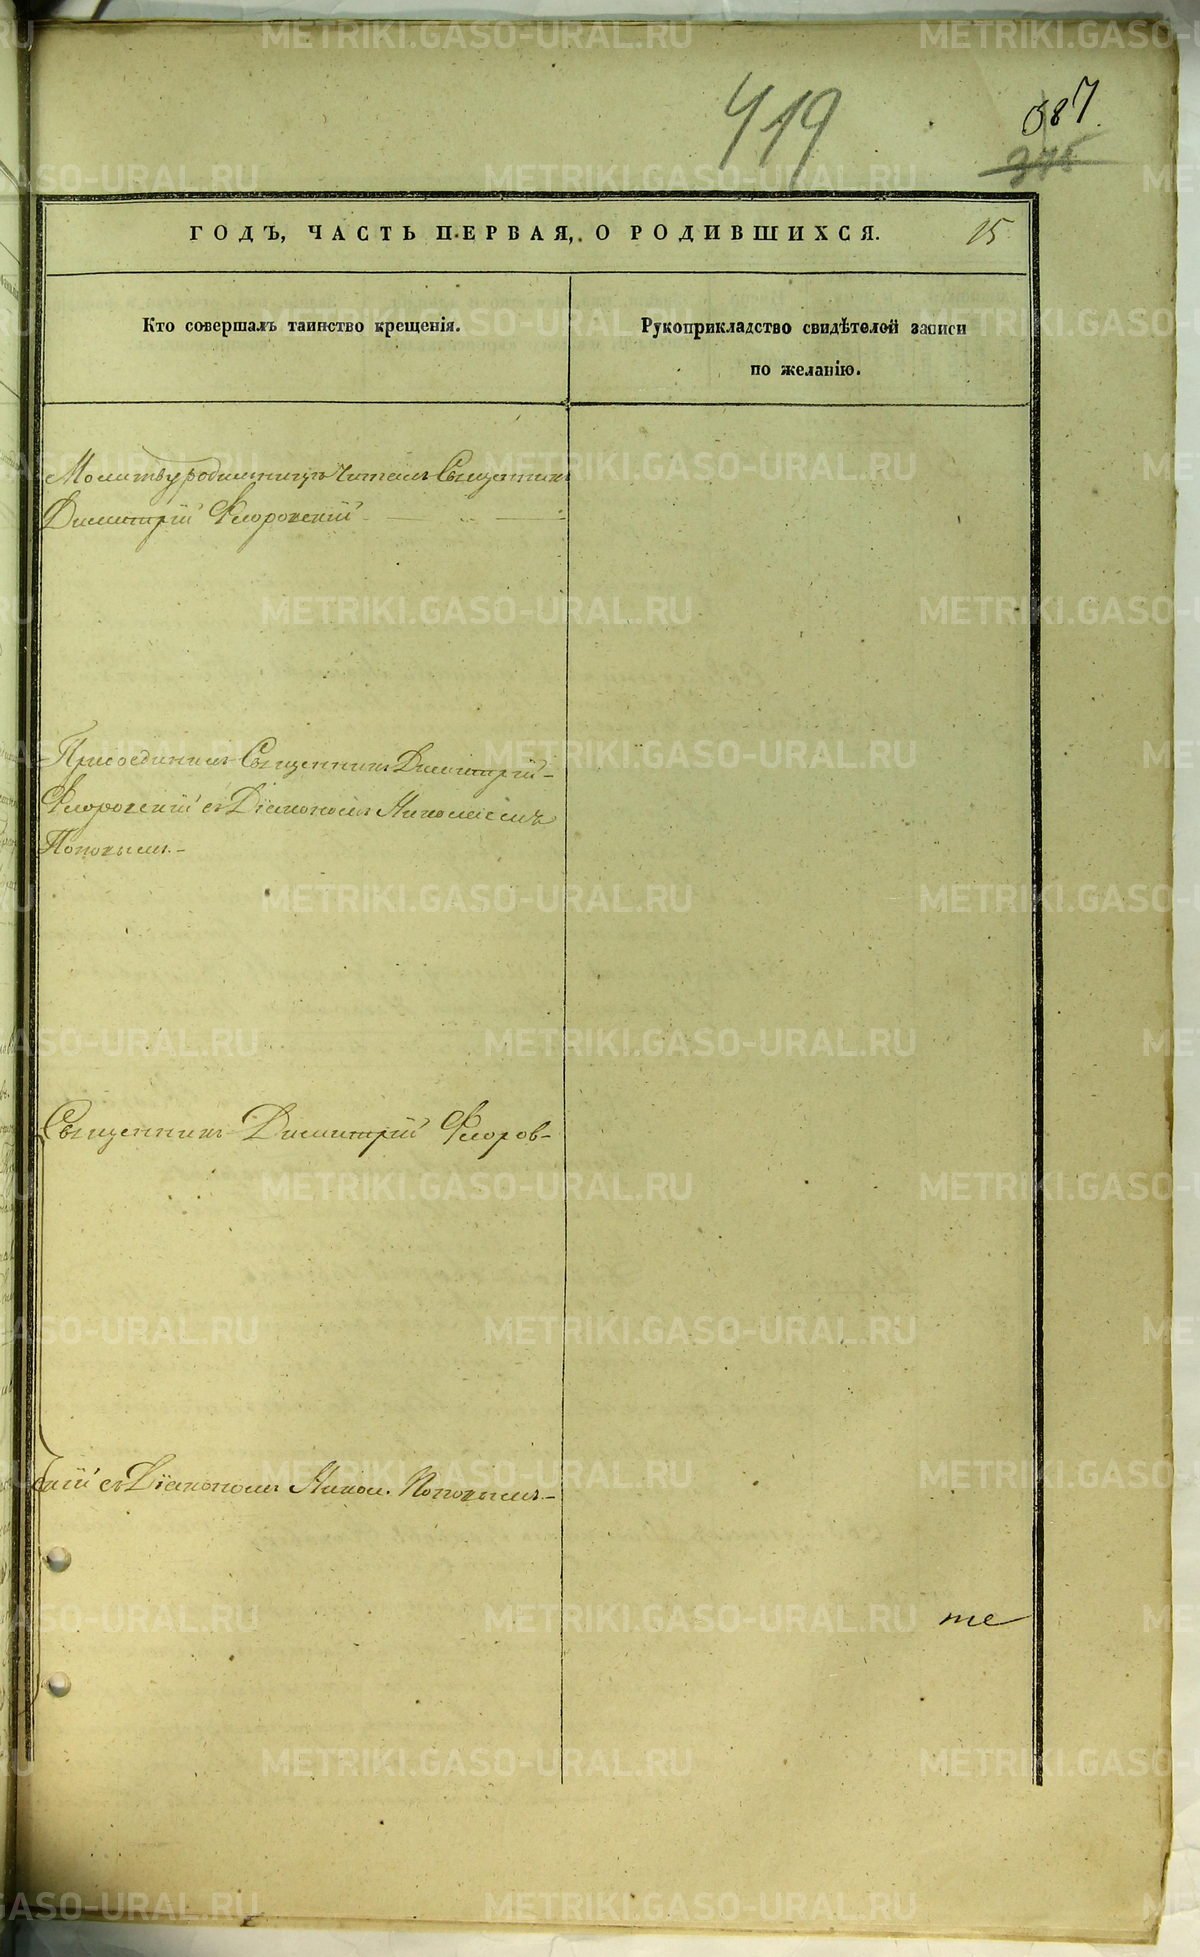 419
687
375
ГОДЪ, ЧАСТЬ ПЕРВАЯ, О РОДИВШИХСЯ.
15
Кто совершалъ таинство крещенія.
Рукоприкладство свидѣтелей записи
по желанію.
Молитву родильницѣ читалъ Священникъ
Димитрій Флоровскій
Присоединилъ Священникъ Димитрій
Флоровскій съ Діакономъ Николаемъ
Поповымъ.
Священникъ Димитрій Флоров-
скій съ Діакономъ Никол. Поповымъ.
те
METRIKI.GASO-URAL.RU